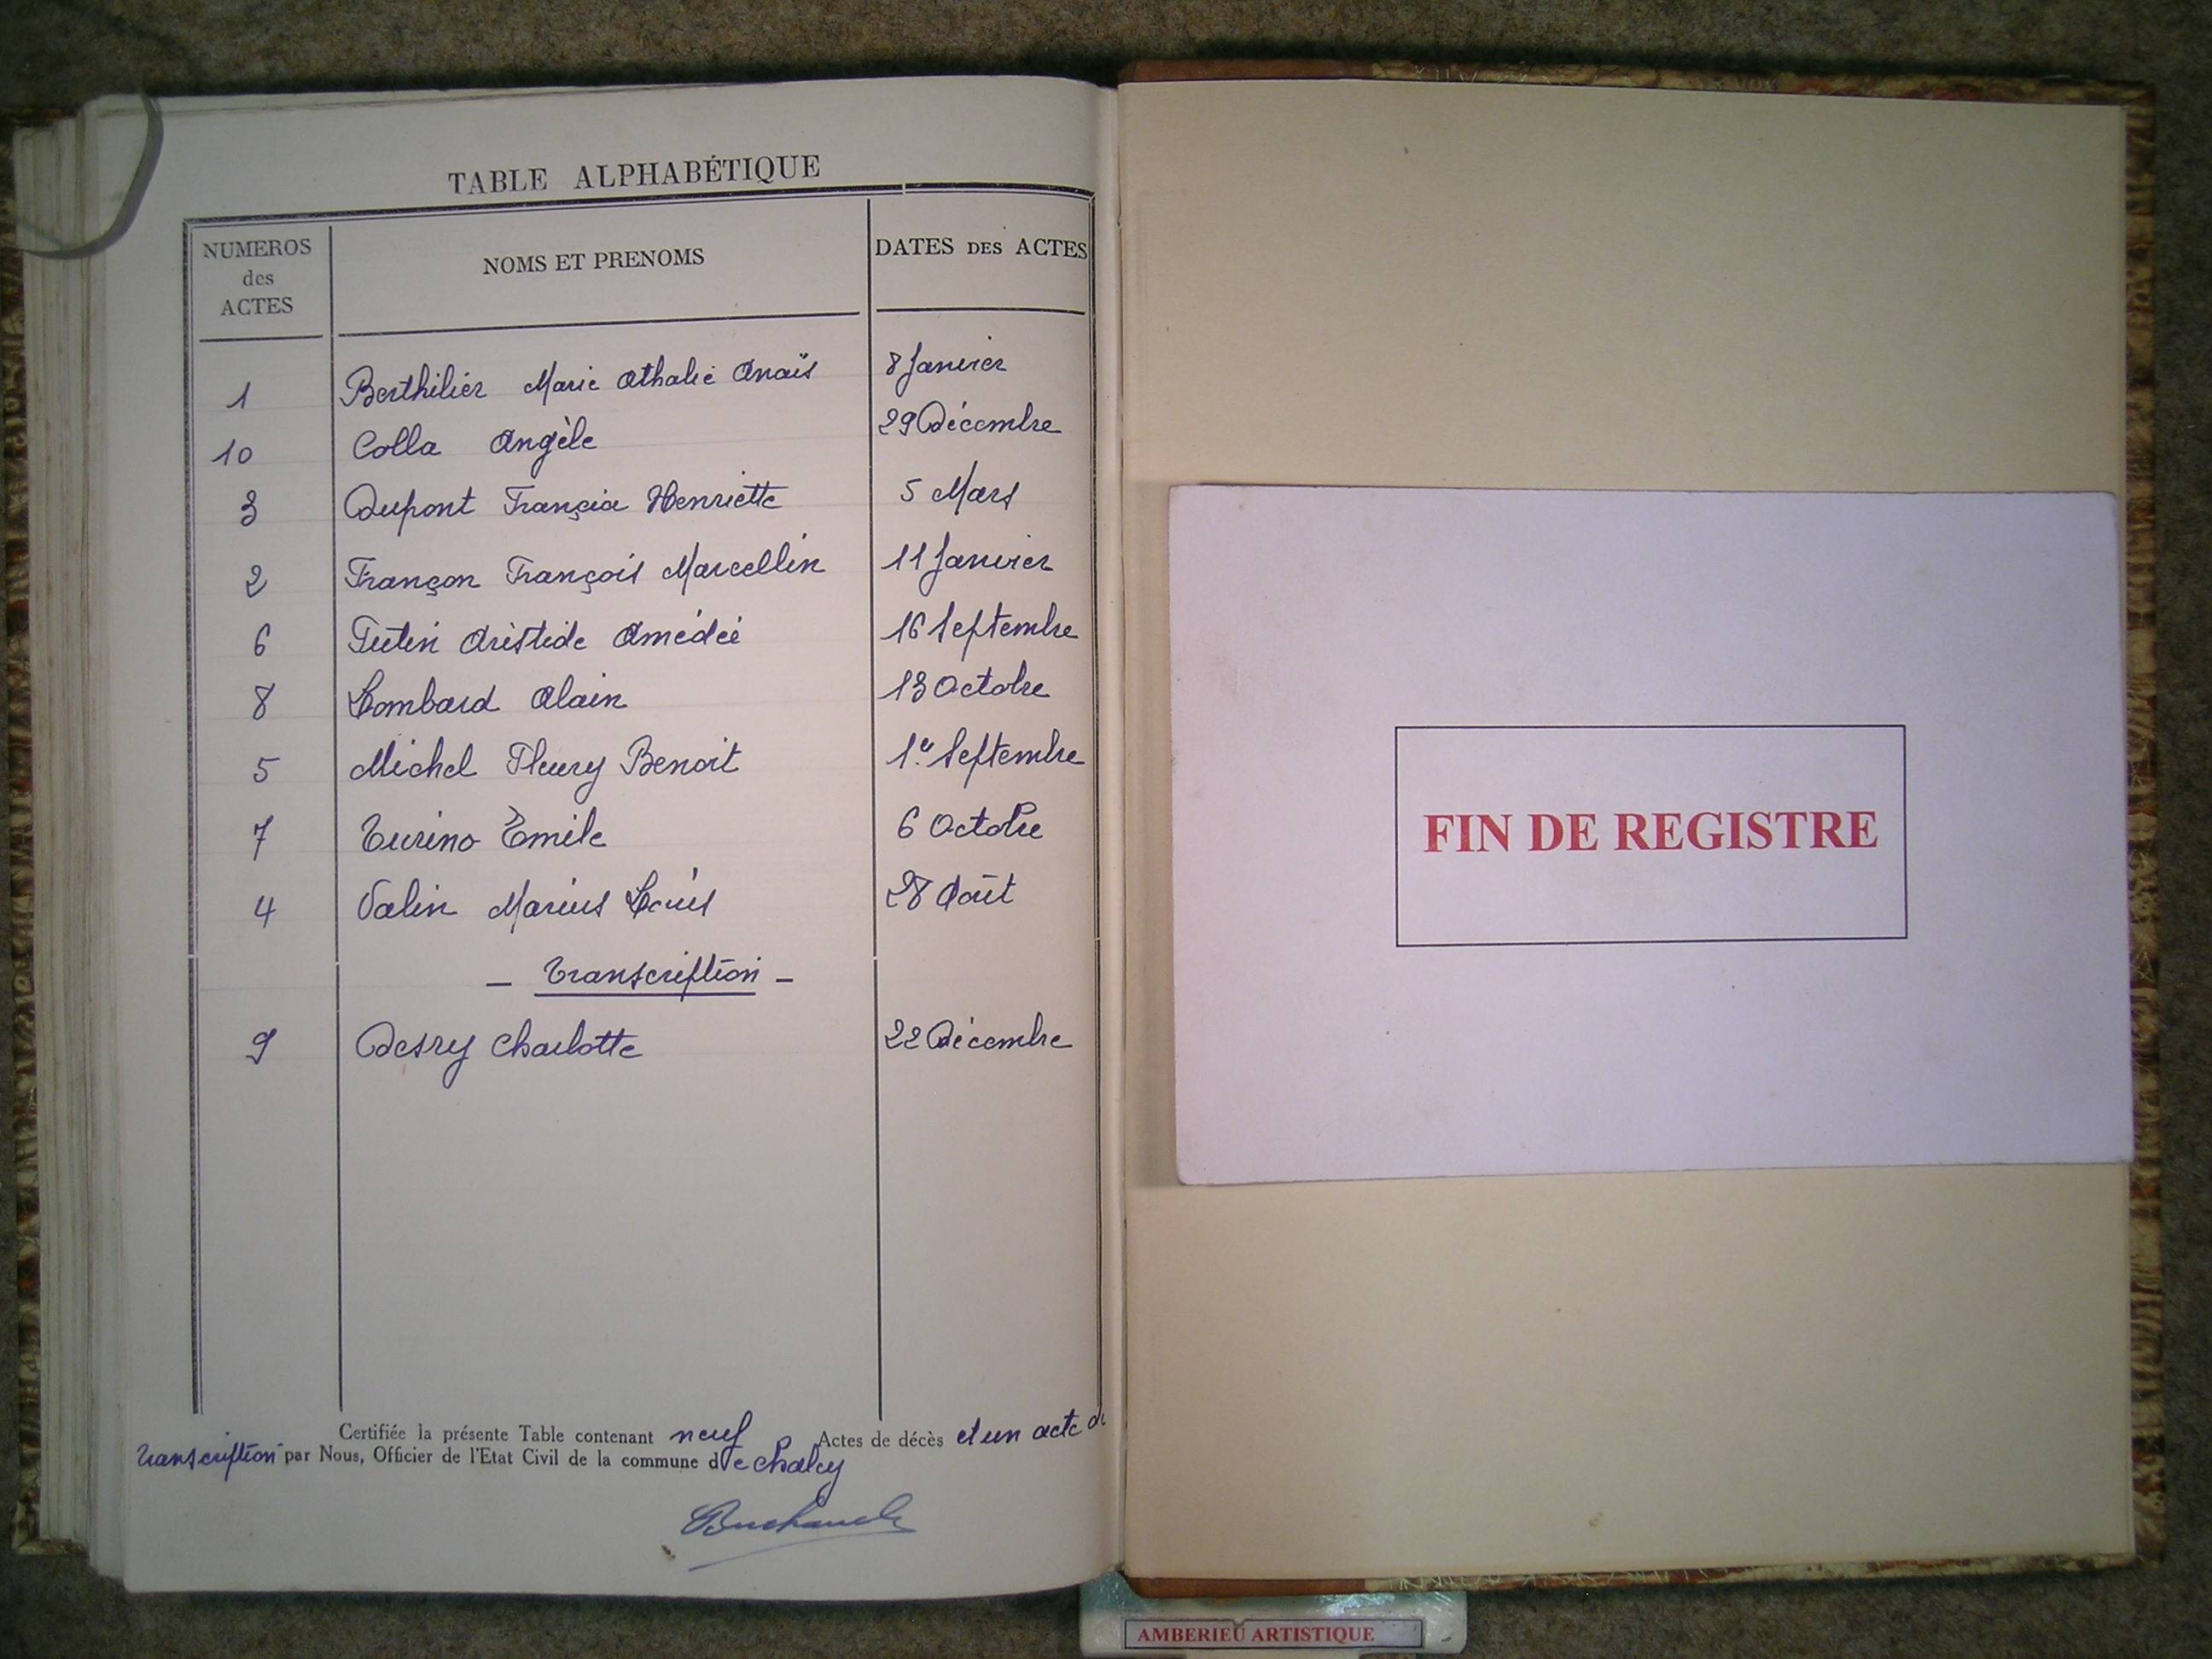 TABLE ALPHABÉTIQUE
NUMEROS des ACTES
NOMS ET PRENOMS
DATES DES ACTES
1 Berthilier Marie Athalie Anaïs 8 Janvier
10 Colla Angèle 29 Décembre
3 Dupont Françia Henriette 5 Mars
2 Françon François Marcellin 11 Janvier
6 Futin Aristide Amédée 16 Septembre
8 Lombard Alain 13 Octobre
5 Michel Fleury Benoit 1e Septembre
7 Turino Émile 6 Octobre
4 Valin Marius Louis 28 Août
- Transcription -
9 Desry Charlotte 22 Décembre
Certifiée la présente Table contenant neuf Actes de décès et un acte de
transcription par Nous, Officier de l'Etat Civil de la commune de
FIN DE REGISTRE
AMBERIEU ARTISTIQUE